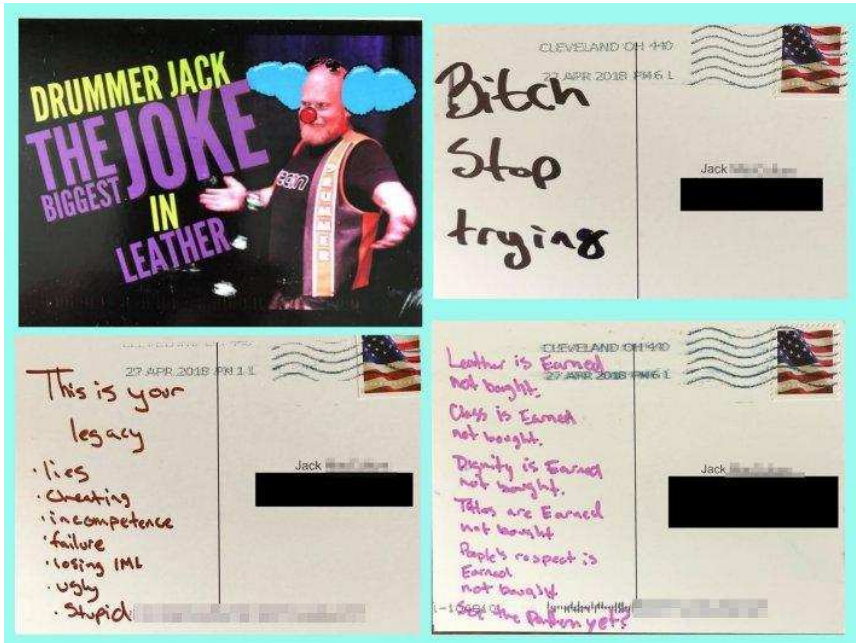 DRUMMER JACK
THE JOKE
BIGGEST
IN
LEATHER
DRUMMER
CLEVELAND OH 440
27 APR 2018 PM 6 L
Bitch
Stop
trying
Jack
27 APR 2018 PM 1 L
This is your
legacy
· lies
· Cheating
· incompetence
· failure
· losing IML
· ugly
· Stupid
Jack
CLEVELAND OH 440
27 APR 2018 PM 6 L
Leather is Earned
not bought.
Class is Earned
not bought.
Dignity is Earned
not bought.
Titles are Earned
not bought
People's respect is
Earned
not bought
See the Pattern yet?
Jack